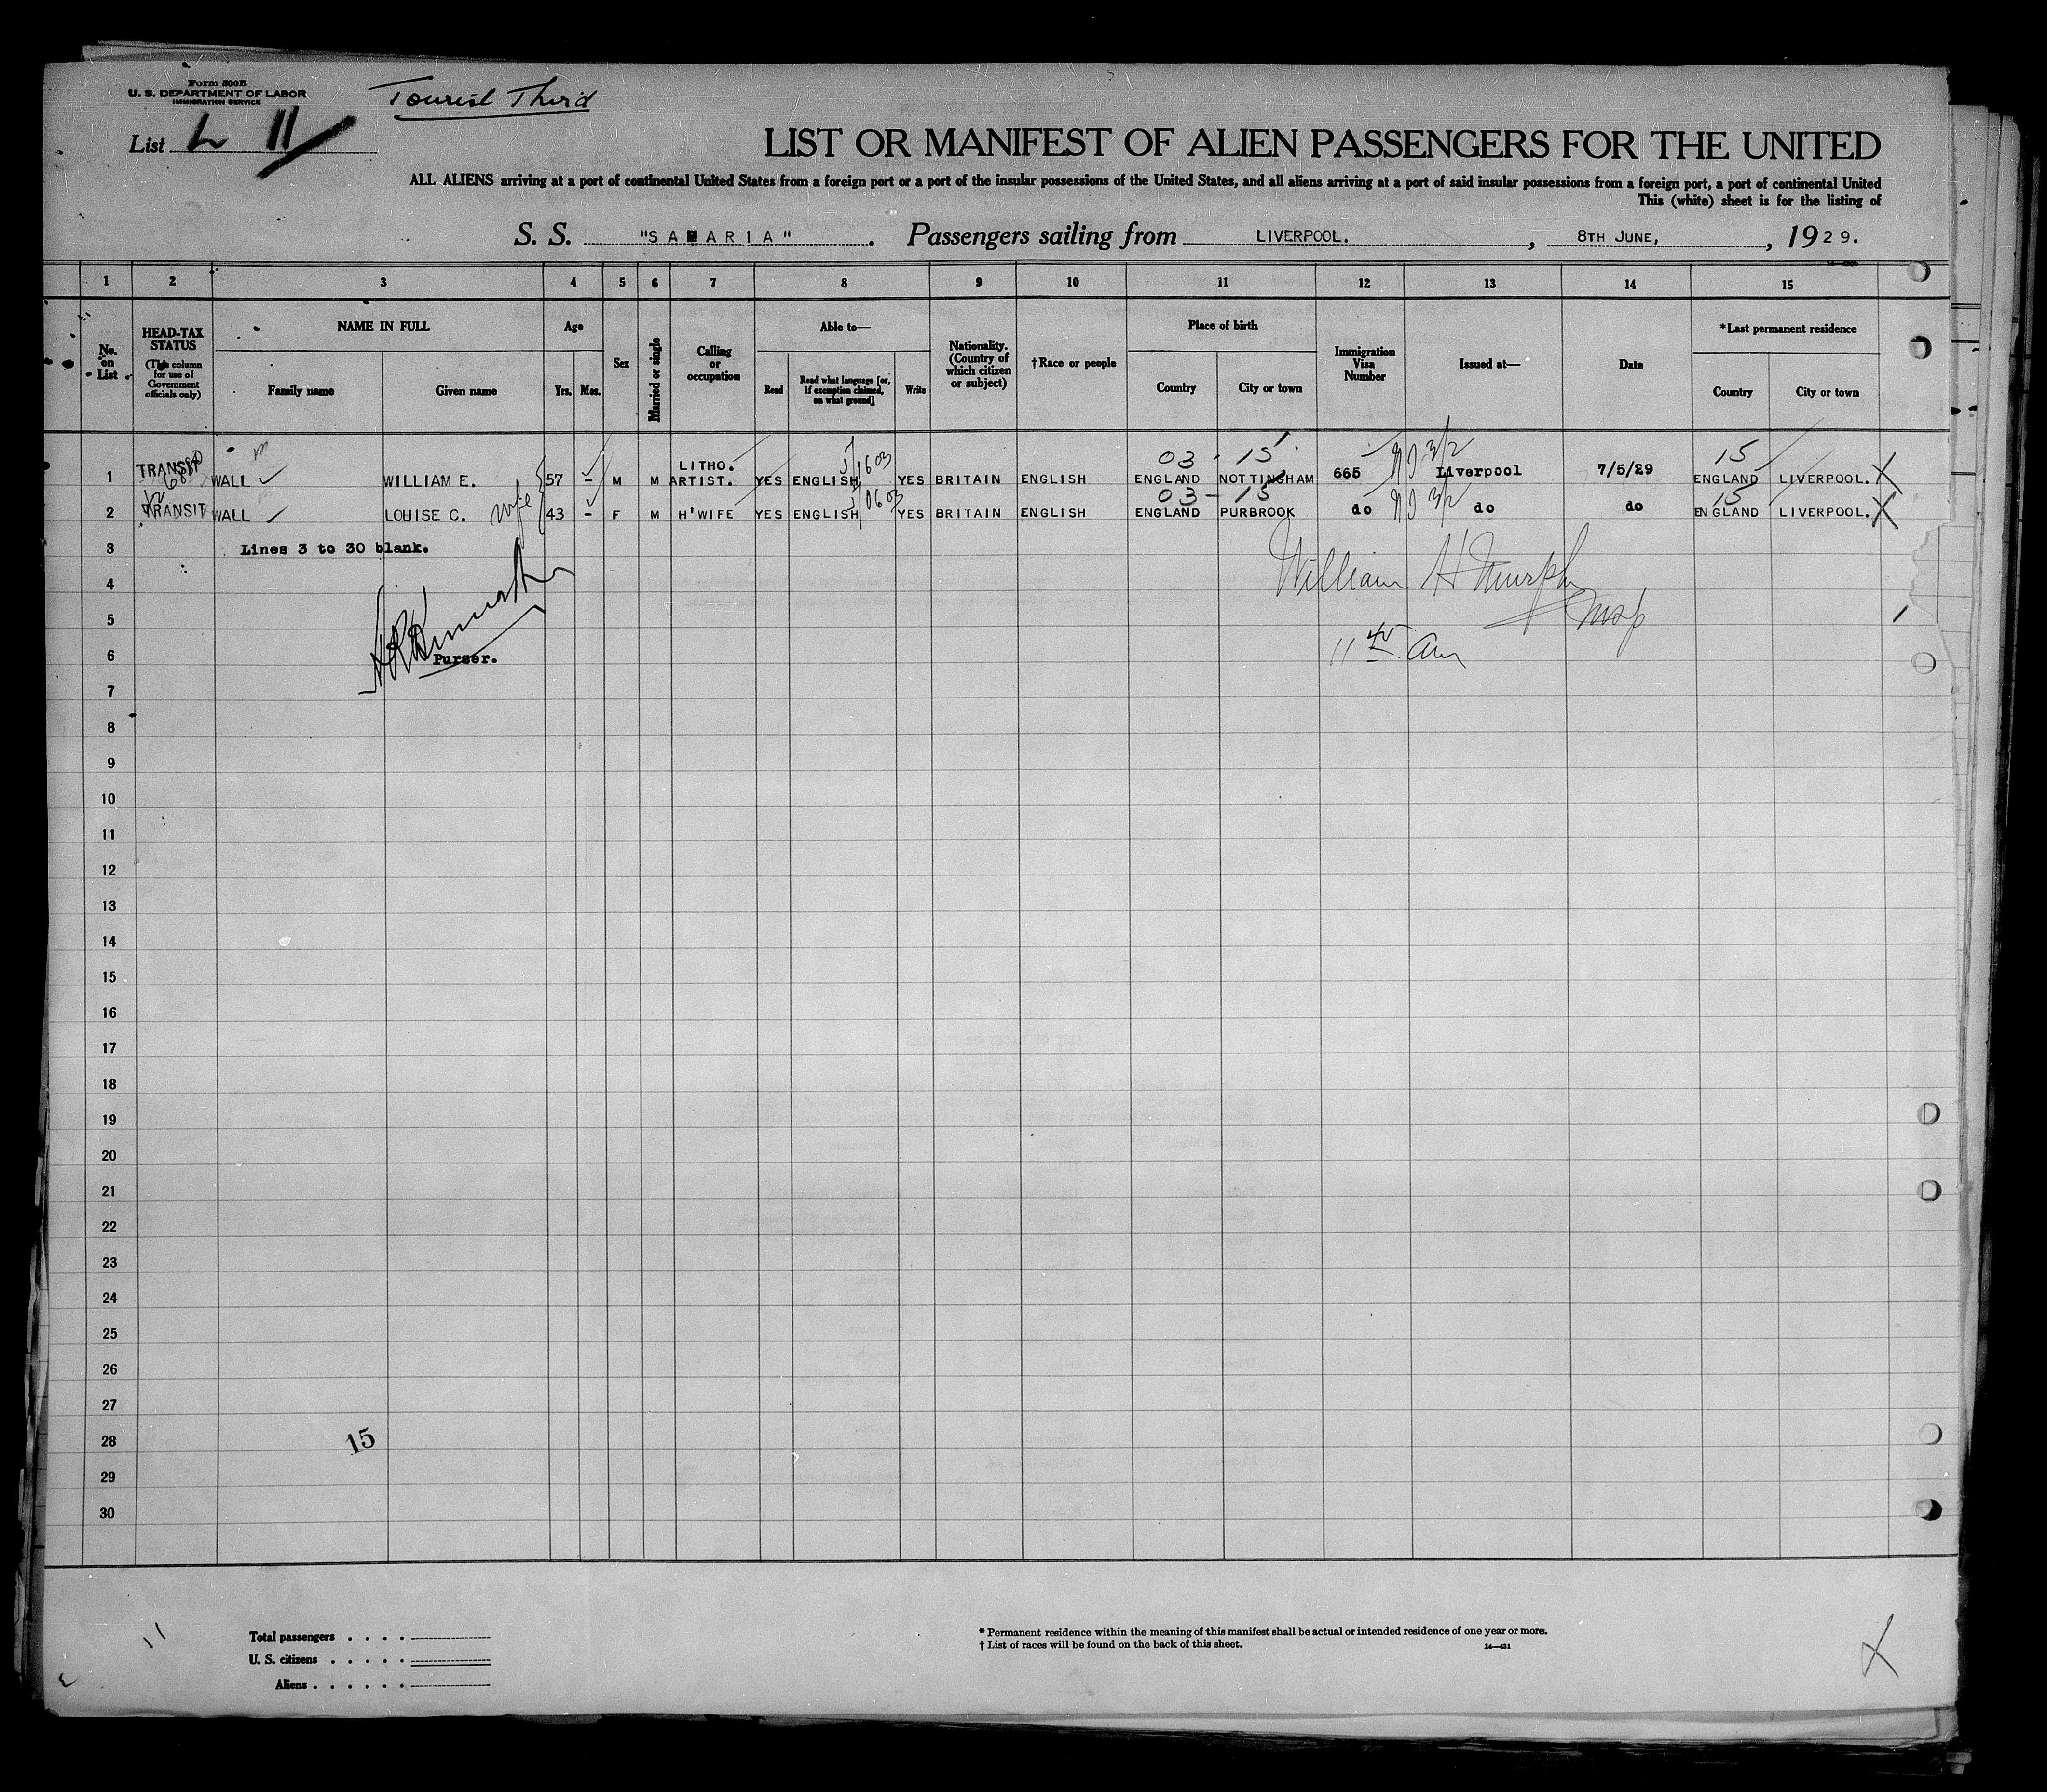 Form 500B
U. S. DEPARTMENT OF LABOR
IMMIGRATION SERVICE
Tourist Third
List L 11
LIST OR MANIFEST OF ALIEN PASSENGERS FOR THE UNITED
ALL ALIENS arriving at a port of continental United States from a foreign port or a port of the insular possessions of the United States, and all aliens arriving at a port of said insular possessions from a foreign port, a port of continental United
This (white) sheet is for the listing of
S. S. "SAMARIA". Passengers sailing from LIVERPOOL., 8TH JUNE, , 1929.
1 2 3 4 5 6 7 8 9 10 11 12 13 14 15
No. on List
HEAD-TAX STATUS
(This column for use of Government officials only)
NAME IN FULL
Family name Given name
Age
Yrs. Mos.
Sex
Married or single
Calling or occupation
Able to—
Read
Read what language [or, if exemption claimed, on what ground]
Write
Nationality. (Country of which citizen or subject)
†Race or people
Place of birth
Country City or town
Immigration Visa Number
Issued at—
Date
*Last permanent residence
Country City or town
03 - 15 15
1 TRANSIT WALL WILLIAM E. 57 - M M LITHO. ARTIST. YES ENGLISH YES BRITAIN ENGLISH ENGLAND NOTTINGHAM 665 Liverpool 7/5/29 ENGLAND LIVERPOOL. X
03 - 15 15
2 TRANSIT WALL LOUISE C. wife 43 - F M H'WIFE YES ENGLISH YES BRITAIN ENGLISH ENGLAND PURBROOK do do do ENGLAND LIVERPOOL. X
3 Lines 3 to 30 blank.
4 William H Murphy
5
6 Purser. 11 45 am
7
8
9
10
11
12
13
14
15
16
17
18
19
20
21
22
23
24
25
26
27
28 15
29
30
11
Total passengers
U. S. citizens
Aliens
* Permanent residence within the meaning of this manifest shall be actual or intended residence of one year or more.
† List of races will be found on the back of this sheet.
14—431
X